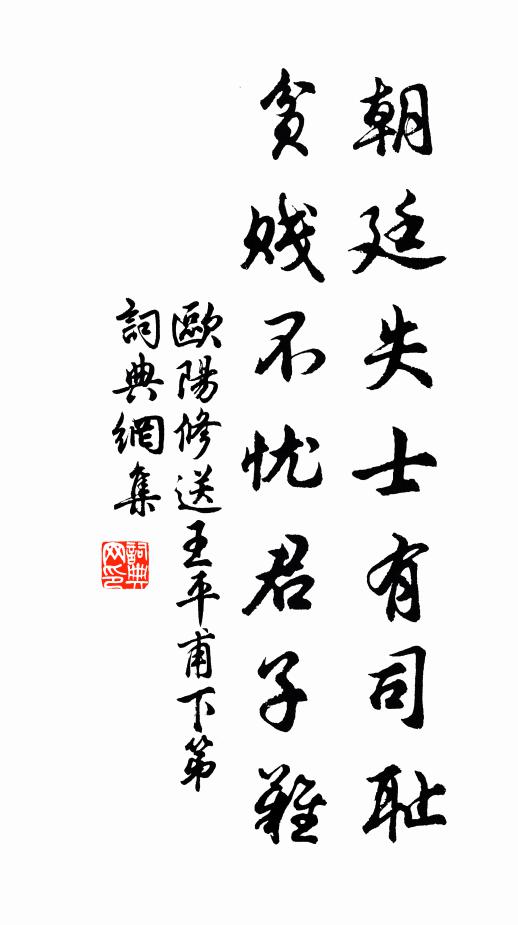 朝廷失士有司耻
貧賤不忧君子難
歐陽修送王平甫下第
詞典網集
詞典网印